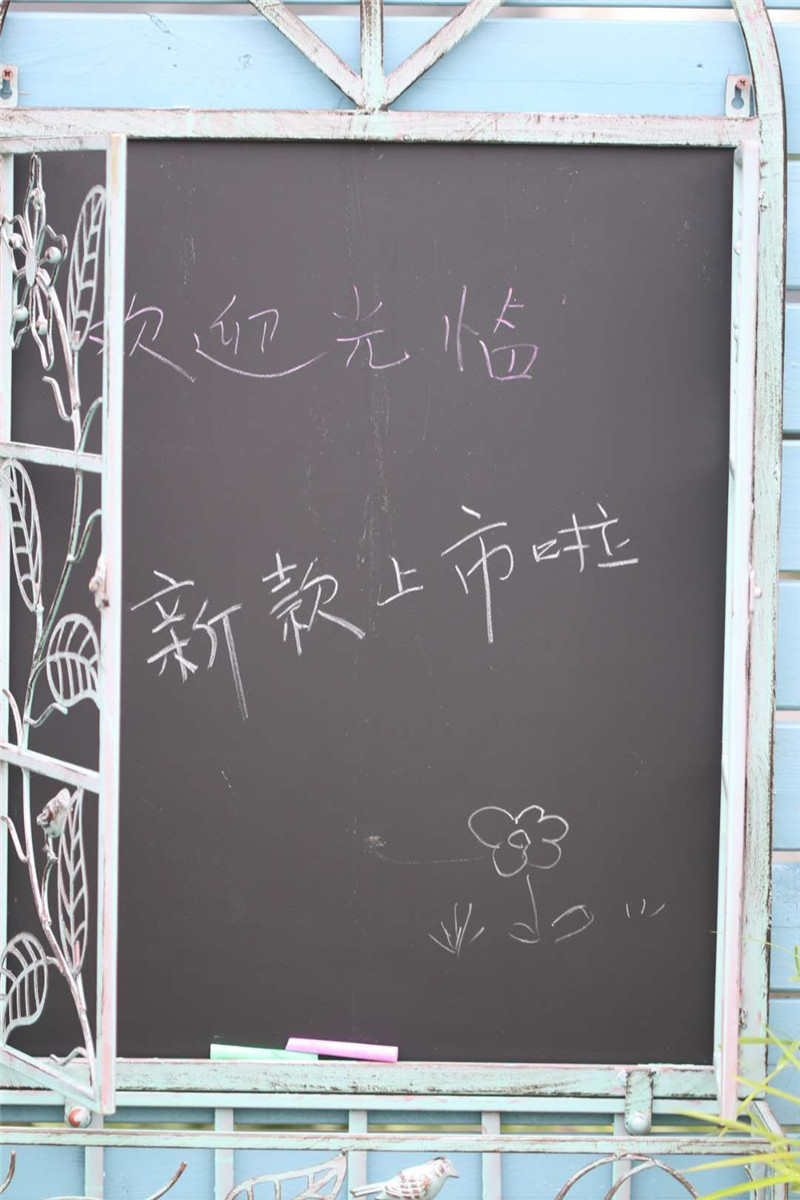 欢迎光临
新款上市啦